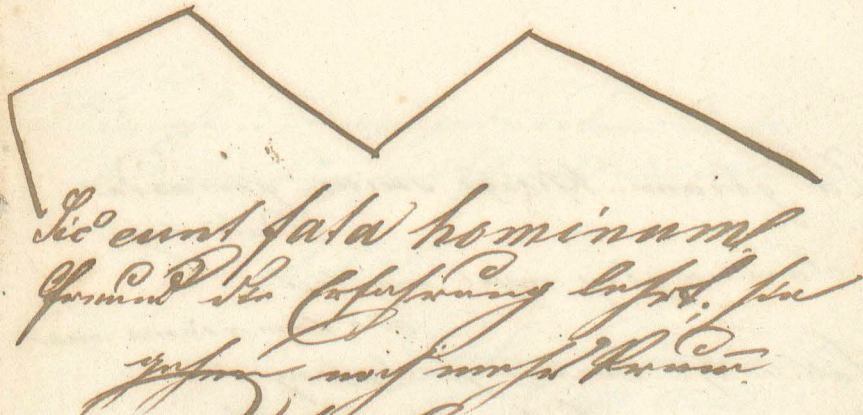 Sic eunt fata hominum!
Freund die Erfahrung lehrt, sie
gehen noch mehr krum̄